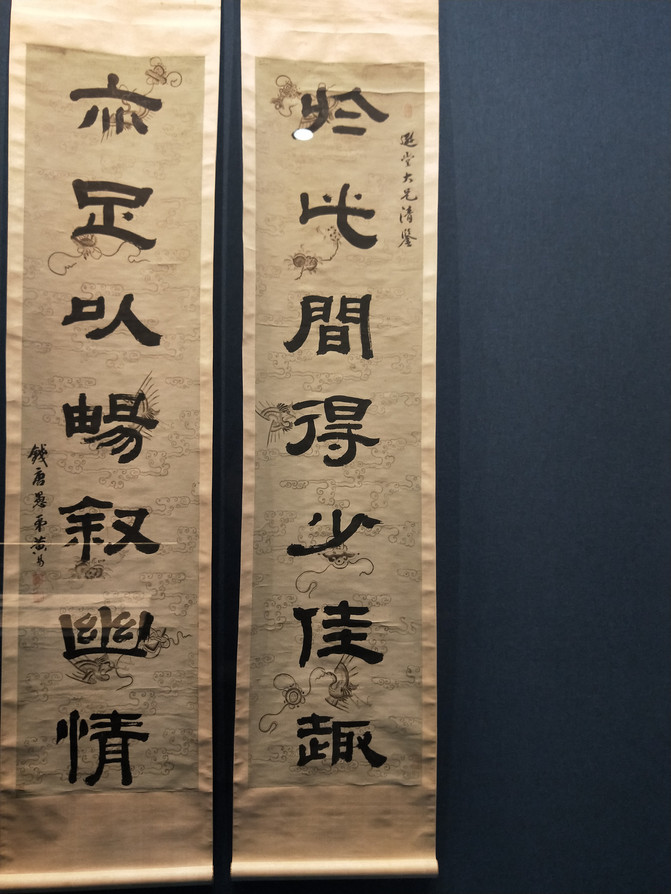 堂大兄清鑒
於此間得少佳趣
亦足以暢叙幽情
錢唐愚弟黃易